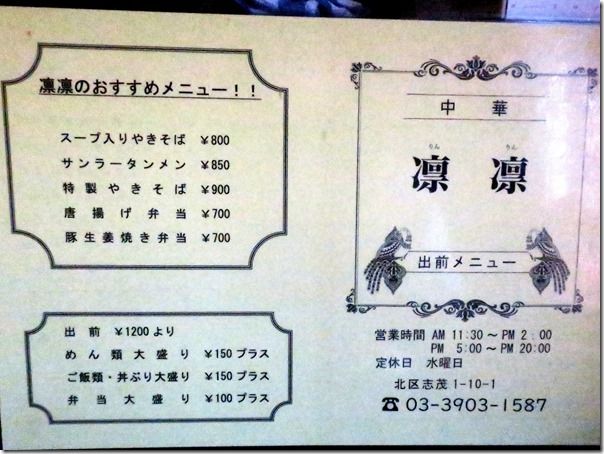 凛凛のおすすめメニュー！！
スープ入りやきそば ￥800
サンラータンメン ￥850
特製やきそば ￥900
唐揚げ弁当 ￥700
豚生姜焼き弁当 ￥700
出前 ￥1200より
めん類大盛り ￥150プラス
ご飯類・丼ぶり大盛り ￥150プラス
弁当大盛り ￥100プラス
中華
りん りん
凛 凛
出前メニュー
営業時間 AM 11:30～PM 2:00
PM 5:00～PM 20:00
定休日 水曜日
北区志茂1-10-1
☎ 03-3903-1587